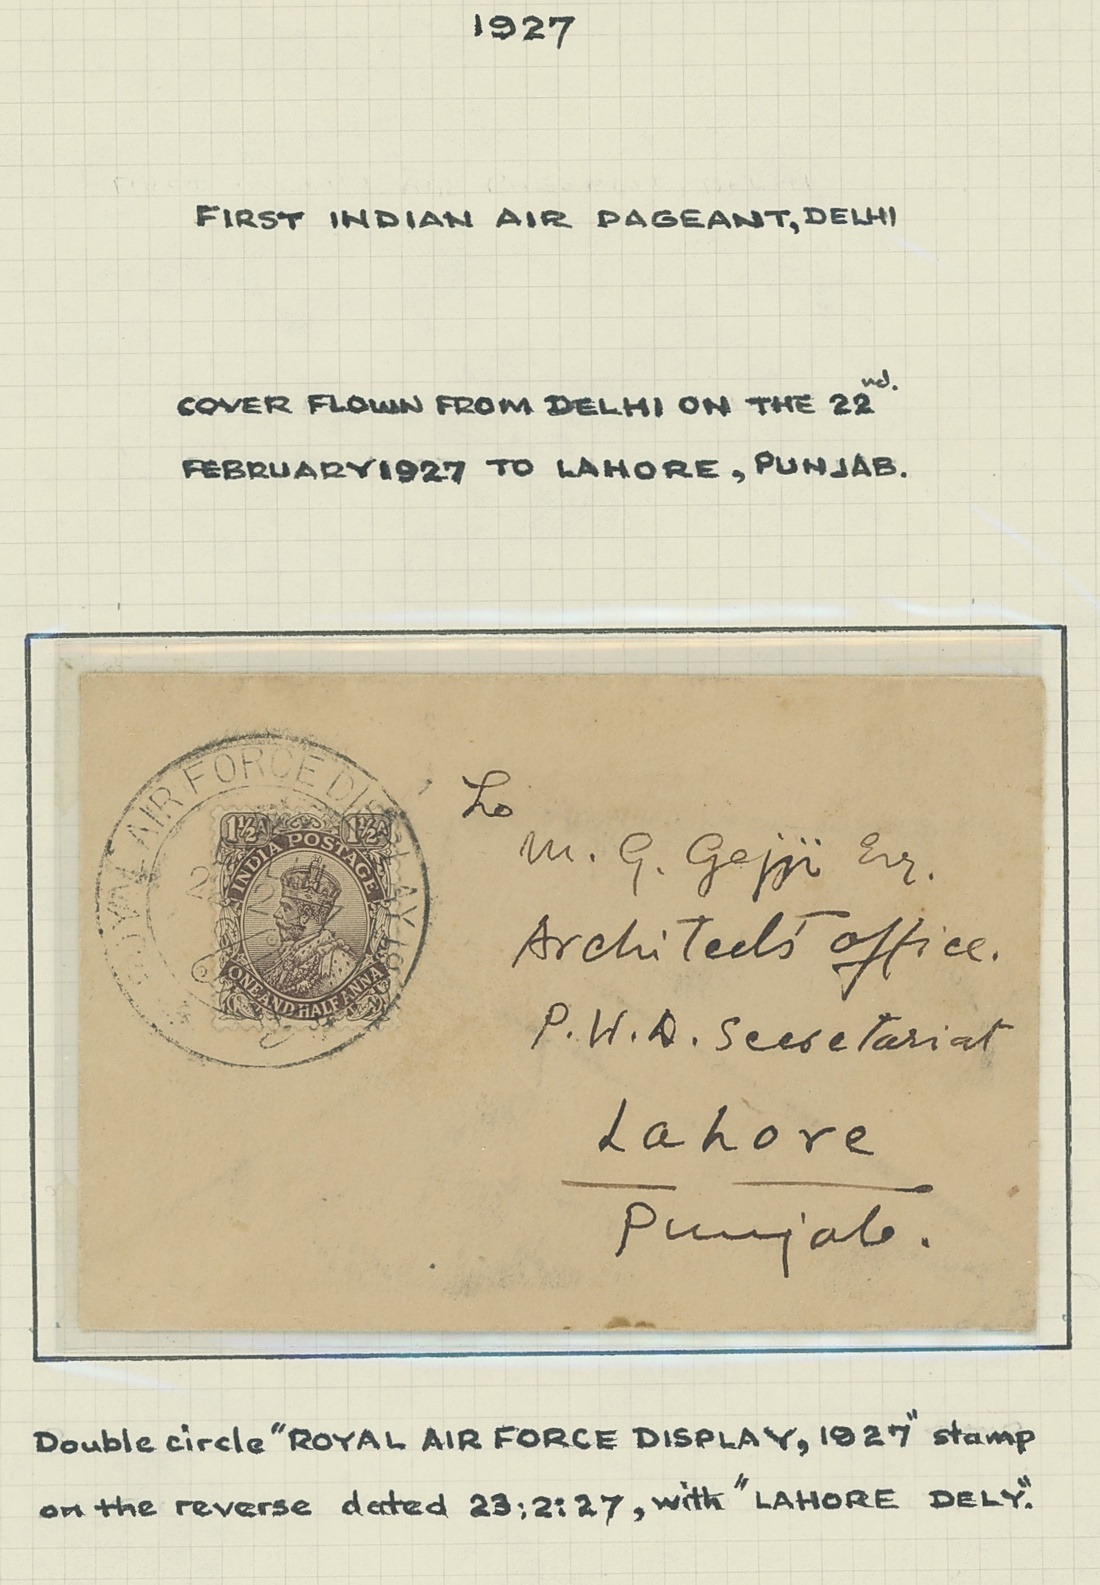 1927
FIRST INDIAN AIR PAGEANT, DELHI
COVER FLOWN FROM DELHI ON THE 22nd.
FEBRUARY 1927 TO LAHORE, PUNJAB.
ROYAL AIR FORCE DISPLAY 19
1½A 1½A
INDIA POSTAGE
ONE AND HALF ANNA
To
M. G. Gejji Esq.
Architects office.
P.W.D. Secretariat
Lahore
Punjab.
Double circle "ROYAL AIR FORCE DISPLAY, 1927" stamp
on the reverse dated 23:2:27, with "LAHORE DELY."